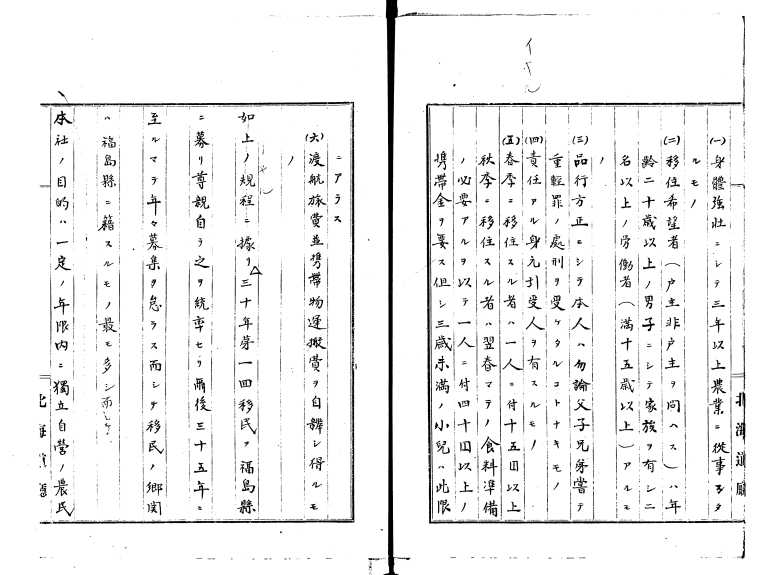 (一)身體強壮ニシテ三年以上農業ニ從事
ルモノ
(二)移住希望者(戸主非戸主ヲ問ハス)ハ年
齢二十歳以上ノ男子ニシテ家族ヲ有シ二
名以上ノ労働者(満十五歳以上)アルモ
ノ
(三)品行方正ニシテ本人ハ勿論父子兄弟嘗テ
重輕罪ノ處刑ヲ受ケタルコトナキモノ
(四)責任アル身元引受人ヲ有スルモノ
(五)春季ニ移住スル者ハ一人ニ付十五囙以上
秋季ニ移住スル者ハ翌春マテノ食料準備
ノ必要アルヲ以テ一人ニ付四十囙以上ノ
携帯金ヲ要ス但シ三歳未満ノ小兒ハ此限
北海道廳
ニアラス
(六)渡航旅費並携帶物運搬費ヲ自辨シ得ルモ
ノ
如上ノ規程ニ據リ三十年第一回移民ヲ福島縣
ニ募リ尊親自ラ之ヲ統率セリ爾後三十五年ニ
至ルマテ年々募集ヲ怠ラス而シテ移民ノ郷関
ハ福島縣ニ籍スルモノ最モ多シ
本社ノ目的ハ一定ノ年限内ニ獨立自營ノ農民
北海道廳